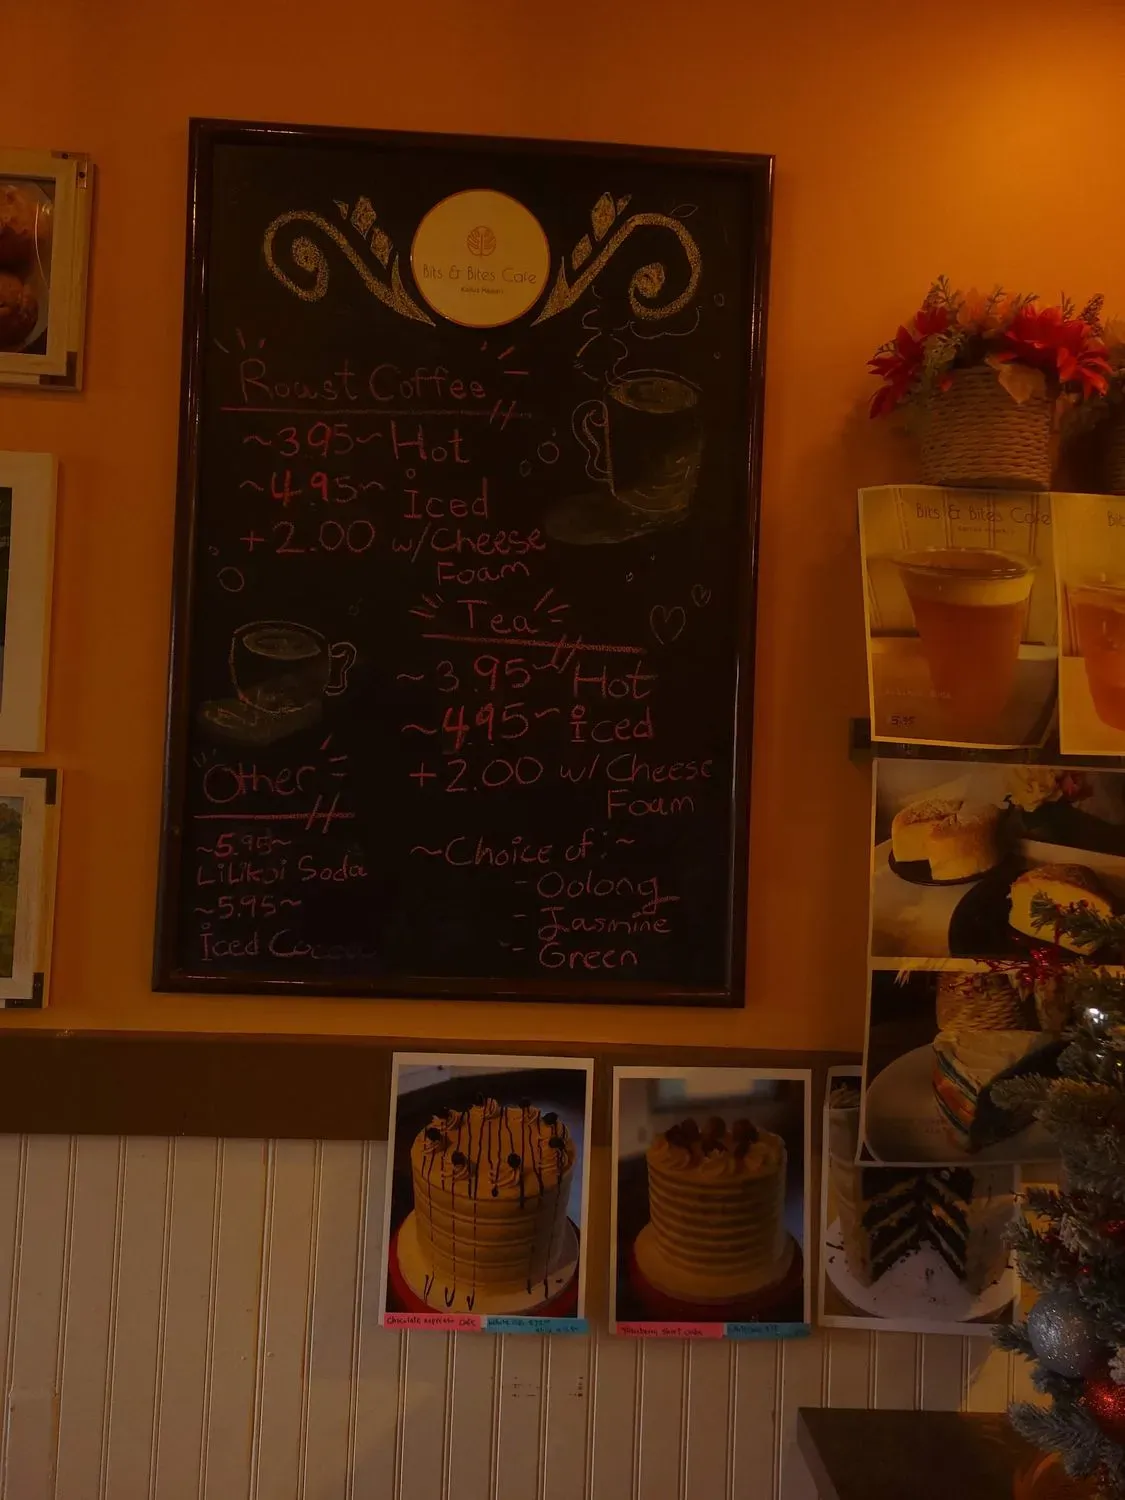 Bits & Bites Cafe
Roast Coffee
~3.95~ Hot
~4.95~ Iced
+2.00 w/Cheese
Foam
Tea
~3.95~ Hot
~4.95~ Iced
+2.00 w/ Cheese
Foam
~Choice of:~
- Oolong
- Jasmine
- Green
Other
~5.95~
LiLikoi Soda
~5.95~
Iced
Bits & Bites Cafe
5.95
Chocolate espresso cake
short cake